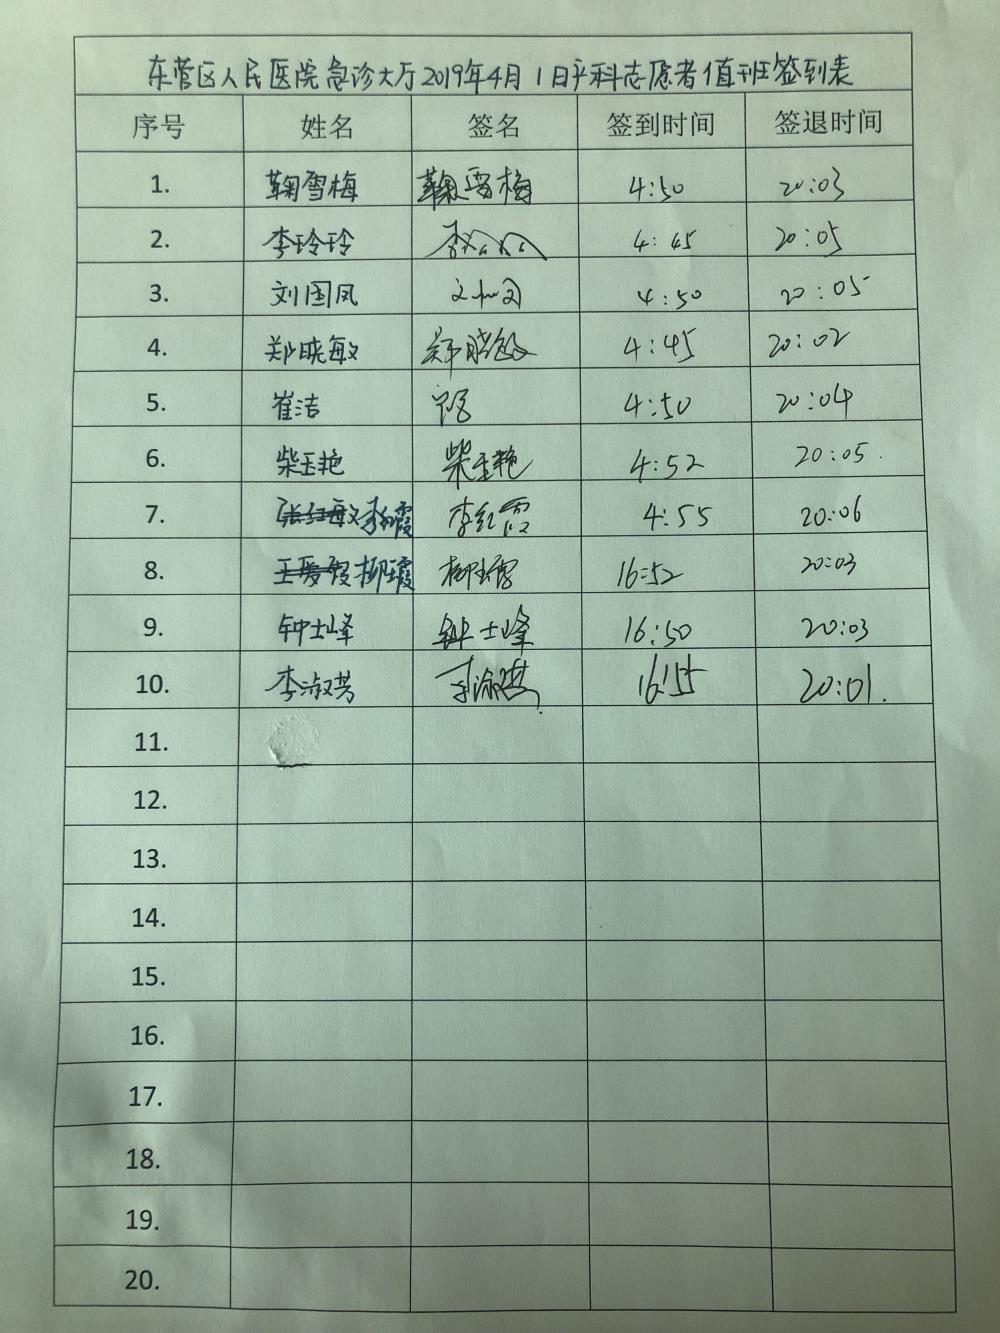 东营区人民医院急诊大厅2019年4月1日产科志愿者值班签到表
序号 姓名 签名 签到时间 签退时间
1. 鞠雪梅 鞠雪梅 4:50 20:03
2. 李玲玲 4:45 20:05
3. 刘国凤 4:50 20:05
4. 郑晓敏 郑晓敏 4:45 20:02
5. 崔洁 4:50 20:04
6. 柴玉艳 柴玉艳 4:52 20:05.
7. 张红敏 李红霞 李红霞 4:55 20:06
8. 王爱霞 柳玉霞 柳玉霞 16:52 20:03
9. 钟士峰 钟士峰 16:50 20:03
10. 李淑芳 16:55 20:01.
11.
12.
13.
14.
15.
16.
17.
18.
19.
20.